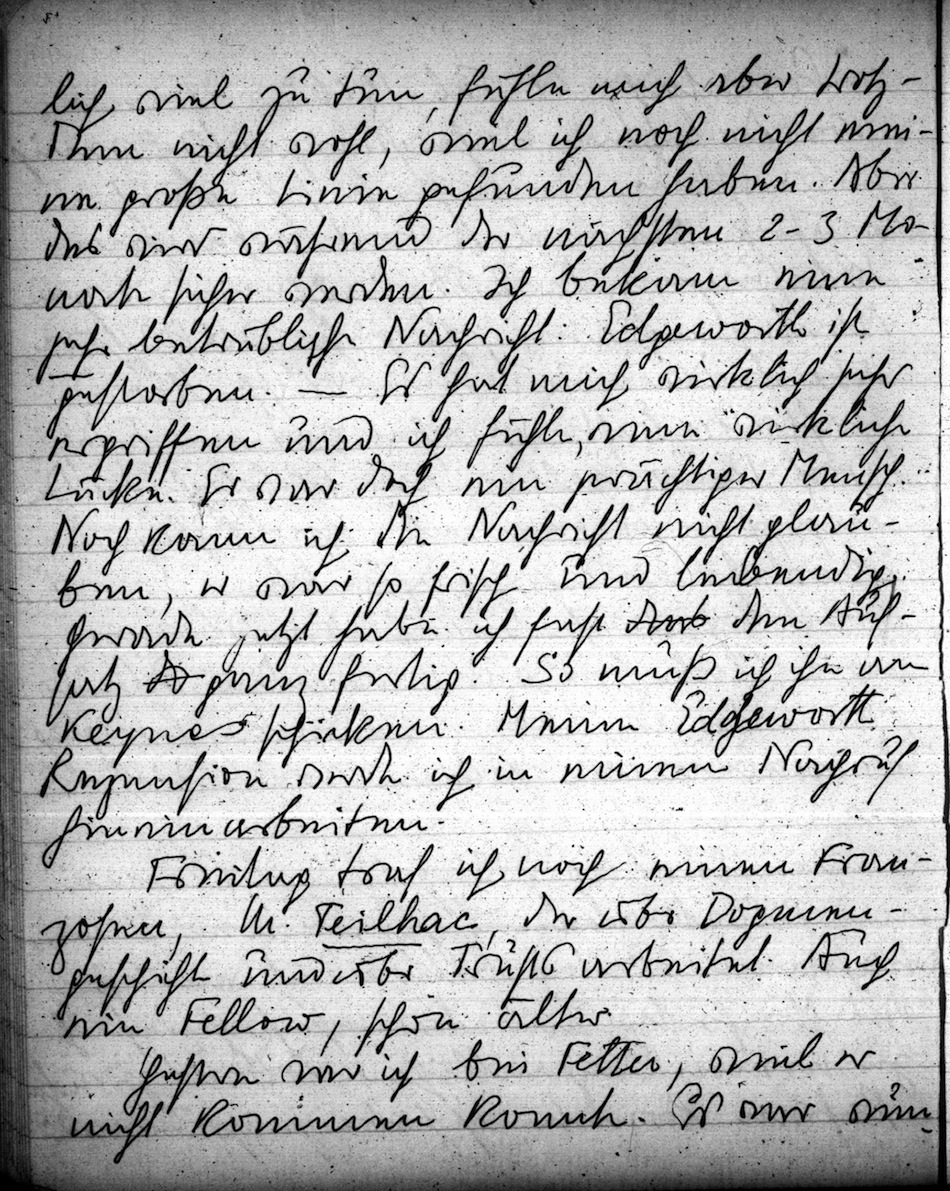 lich viel zu tun, fühle mich aber trotz-
dem nicht wohl, weil ich noch nicht mei-
ne große Linie gefunden habe. Aber
das wird während der nächsten 2-3 Mo-
nate sicher werden. Ich bekam eine
sehr betrübliche Nachricht: Edgeworth ist
gestorben. — Es hat mich wirklich sehr
ergriffen und ich fühle eine wirkliche
Lücke. Er war doch ein prächtiger Mensch.
Noch kann ich die Nachricht nicht glau-
ben, er war so frisch und lebendig.
Gerade jetzt habe ich fast den Auf-
satz ganz fertig. So muß ich ihn an
Keynes schicken. Meine Edgeworth
Rezension werde ich in meinen Nachruf
hineinarbeiten.
Freitag traf ich noch einen Fran-
zosen, M. Teilhac, der über Dogmen-
geschichte und über Trusts arbeitet. Auch
ein Fellow, schon älter.
Gestern war ich bei Fetter, weil er
nicht kommen konnte. Es war